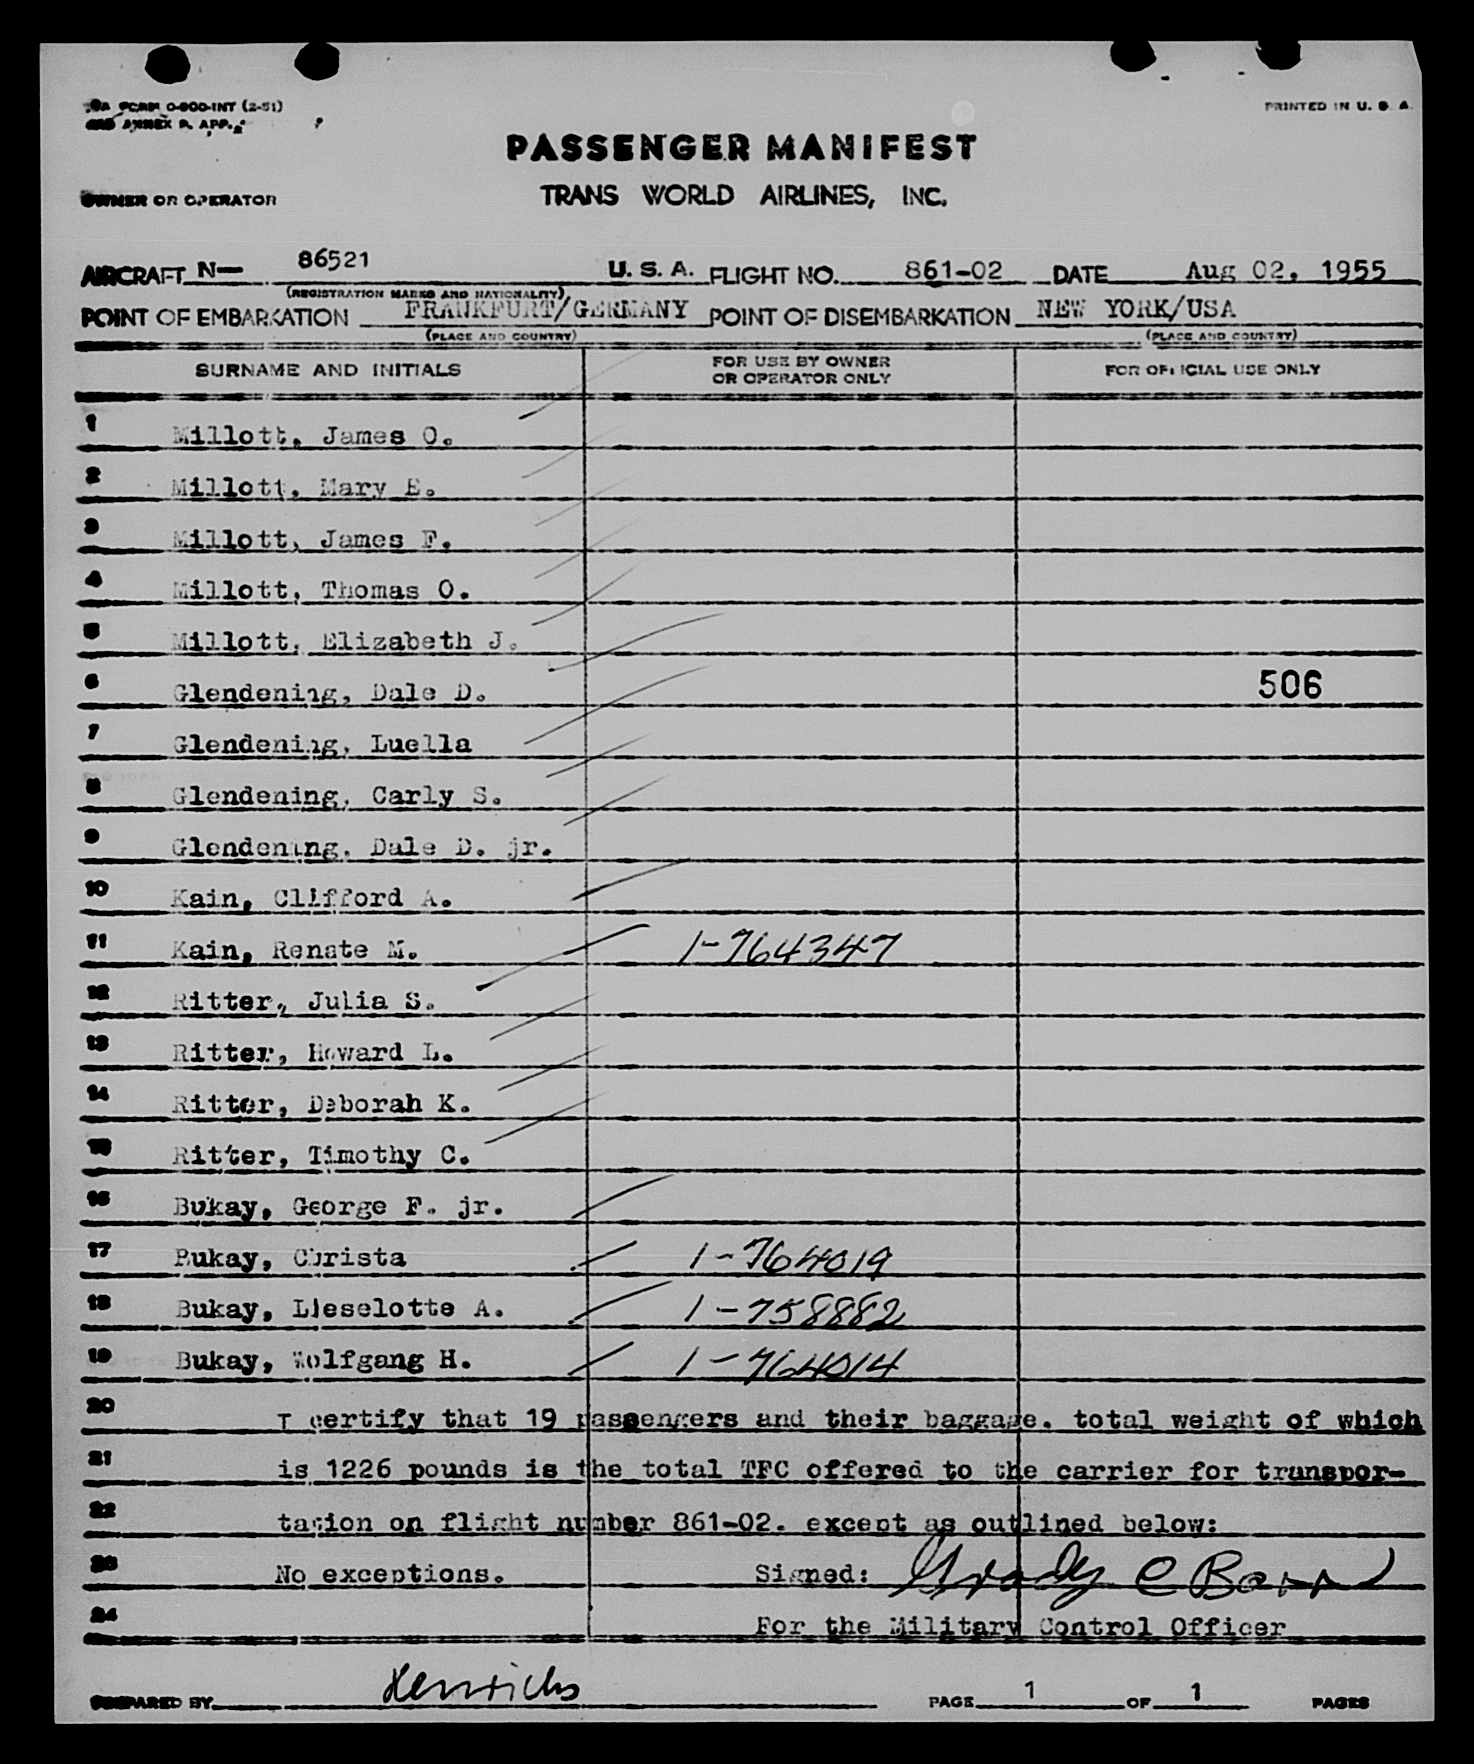 FORM O-900-INT (2-51)
PRINTED IN U. S. A.
ANNEX 9. APP.
PASSENGER MANIFEST
OWNER OR OPERATOR TRANS WORLD AIRLINES, INC.
AIRCRAFT N— 86521 U. S. A. FLIGHT NO. 861-02 DATE Aug 02, 1955
(REGISTRATION MARKS AND NATIONALITY)
POINT OF EMBARKATION FRANKFURT/GERMANY POINT OF DISEMBARKATION NEW YORK/USA
(PLACE AND COUNTRY) (PLACE AND COUNTRY)
SURNAME AND INITIALS FOR USE BY OWNER OR OPERATOR ONLY FOR OFFICIAL USE ONLY
1 Millott, James O.
2 Millott, Mary E.
3 Millott, James F.
4 Millott, Thomas O.
5 Millott, Elizabeth J.
6 Glendening, Dale D. 506
7 Glendening, Luella
8 Glendening, Carly S.
9 Glendening, Dale D. jr.
10 Kain, Clifford A.
11 Kain, Renate M. 1-764347
12 Ritter, Julia S.
13 Ritter, Howard L.
14 Ritter, Deborah K.
15 Ritter, Timothy C.
16 Bukay, George F. jr.
17 Bukay, Christa 1-764019
18 Bukay, Lieselotte A. 1-758882
19 Bukay, Wolfgang H. 1-764014
20 I certify that 19 passengers and their baggage, total weight of which
21 is 1226 pounds is the total TFC offered to the carrier for transpor-
22 tation on flight number 861-02. except as outlined below:
23 No exceptions. Signed: Grady C Barr
24 For the Military Control Officer
PREPARED BY Henrichs PAGE 1 OF 1 PAGES